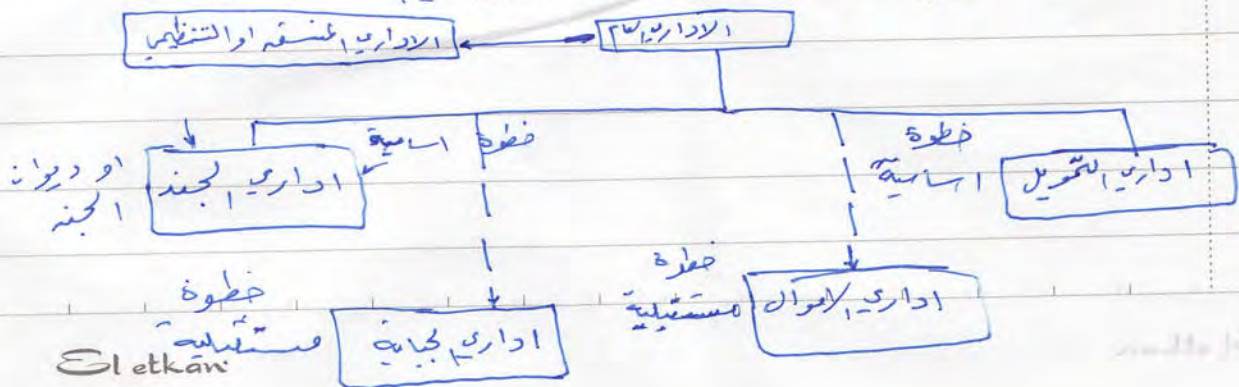 الاداري العام
الاداري المنسق او التنظيمي
خطوة
اساسية
اداري التمويل
خطوة
اساسية
اداري الجند
او ديوان
الجند
خطوة
مستقبلية
اداري الاموال
خطوة
مستقبلية
اداري الجباية
El etkan